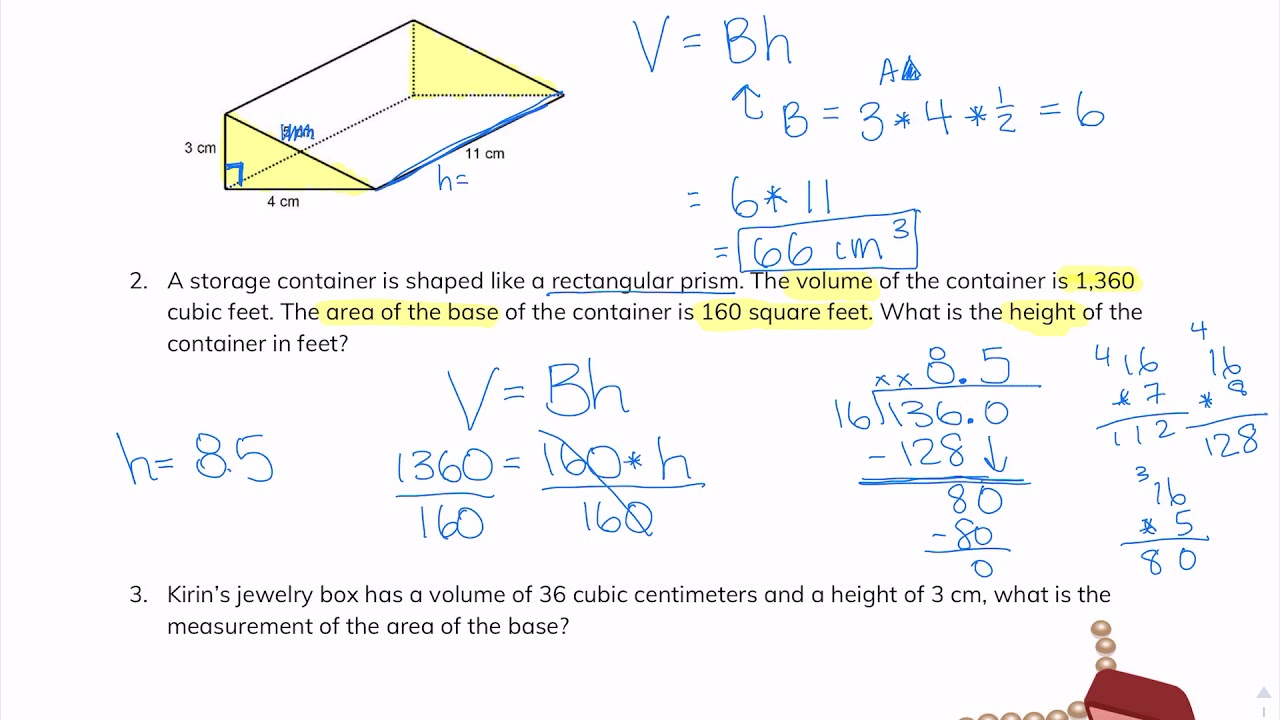 V = Bh
A
↑ B = 3 * 4 * 1/2 = 6
3 cm
11 cm
h=
4 cm
= 6 * 11
= 66 cm³
2. A storage container is shaped like a rectangular prism. The volume of the container is 1,360
cubic feet. The area of the base of the container is 160 square feet. What is the height of the
container in feet?
V = Bh
h= 8.5
1360 = 160 * h
160 160
x x 8.5
16)136.0
- 128 ↓
80
- 80
0
4 16
* 7
112
4
16
* 8
128
3 16
* 5
80
3. Kirin's jewelry box has a volume of 36 cubic centimeters and a height of 3 cm, what is the
measurement of the area of the base?